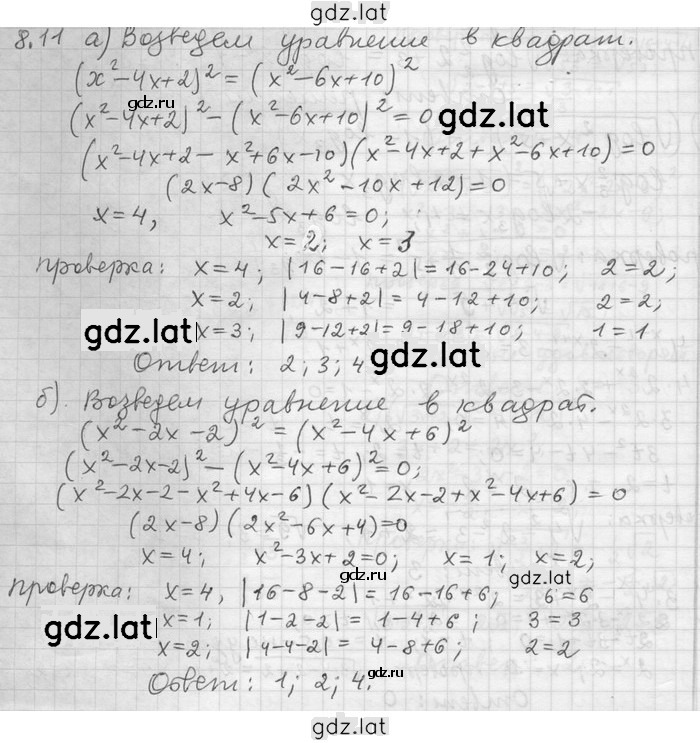 gdz.lat
8.11 а) Возведем уравнение в квадрат.
(x²-4x+2)² = (x²-6x+10)²
gdz.ru
(x²-4x+2)² - (x²-6x+10)² = 0
gdz.lat
(x²-4x+2 - x²+6x-10)(x²-4x+2+x²-6x+10) = 0
(2x-8)(2x²-10x+12) = 0
x=4, x²-5x+6=0;
x=2; x=3
проверка: x=4; |16-16+2| = 16-24+10; 2=2;
x=2; |4-8+2| = 4-12+10; 2=2;
gdz.lat x=3; |9-12+2| = 9-18+10; 1=1
Ответ: 2; 3; 4 gdz.lat
б). Возведем уравнение в квадрат.
(x²-2x-2)² = (x²-4x+6)²
(x²-2x-2)² - (x²-4x+6)² = 0;
(x²-2x-2-x²+4x-6)(x²-2x-2+x²-4x+6) = 0
(2x-8)(2x²-6x+4)=0
x=4; x²-3x+2=0; x=1; x=2;
gdz.lat
проверка: x=4, |16-8-2| = 16-16+6; 6=6
gdz.lat x=1; |1-2-2| = 1-4+6; 3=3
x=2; |4-4-2| = 4-8+6; 2=2
gdz.ru
Ответ: 1; 2; 4.
gdz.lat